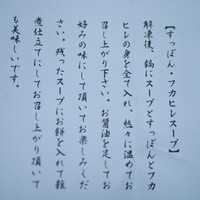 【すっぽん・フカヒレスープ】
解凍後、鍋にスープとすっぽんとフカ
ヒレの身を全て入れ、悠々に温めてお
召し上がり下さい。お醤油を足してお
好みの味にして頂いてお楽しみくだ
さい。残ったスープにお餅を入れて雑
煮仕立てにしてお召し上がり頂いて
も美味しいです。